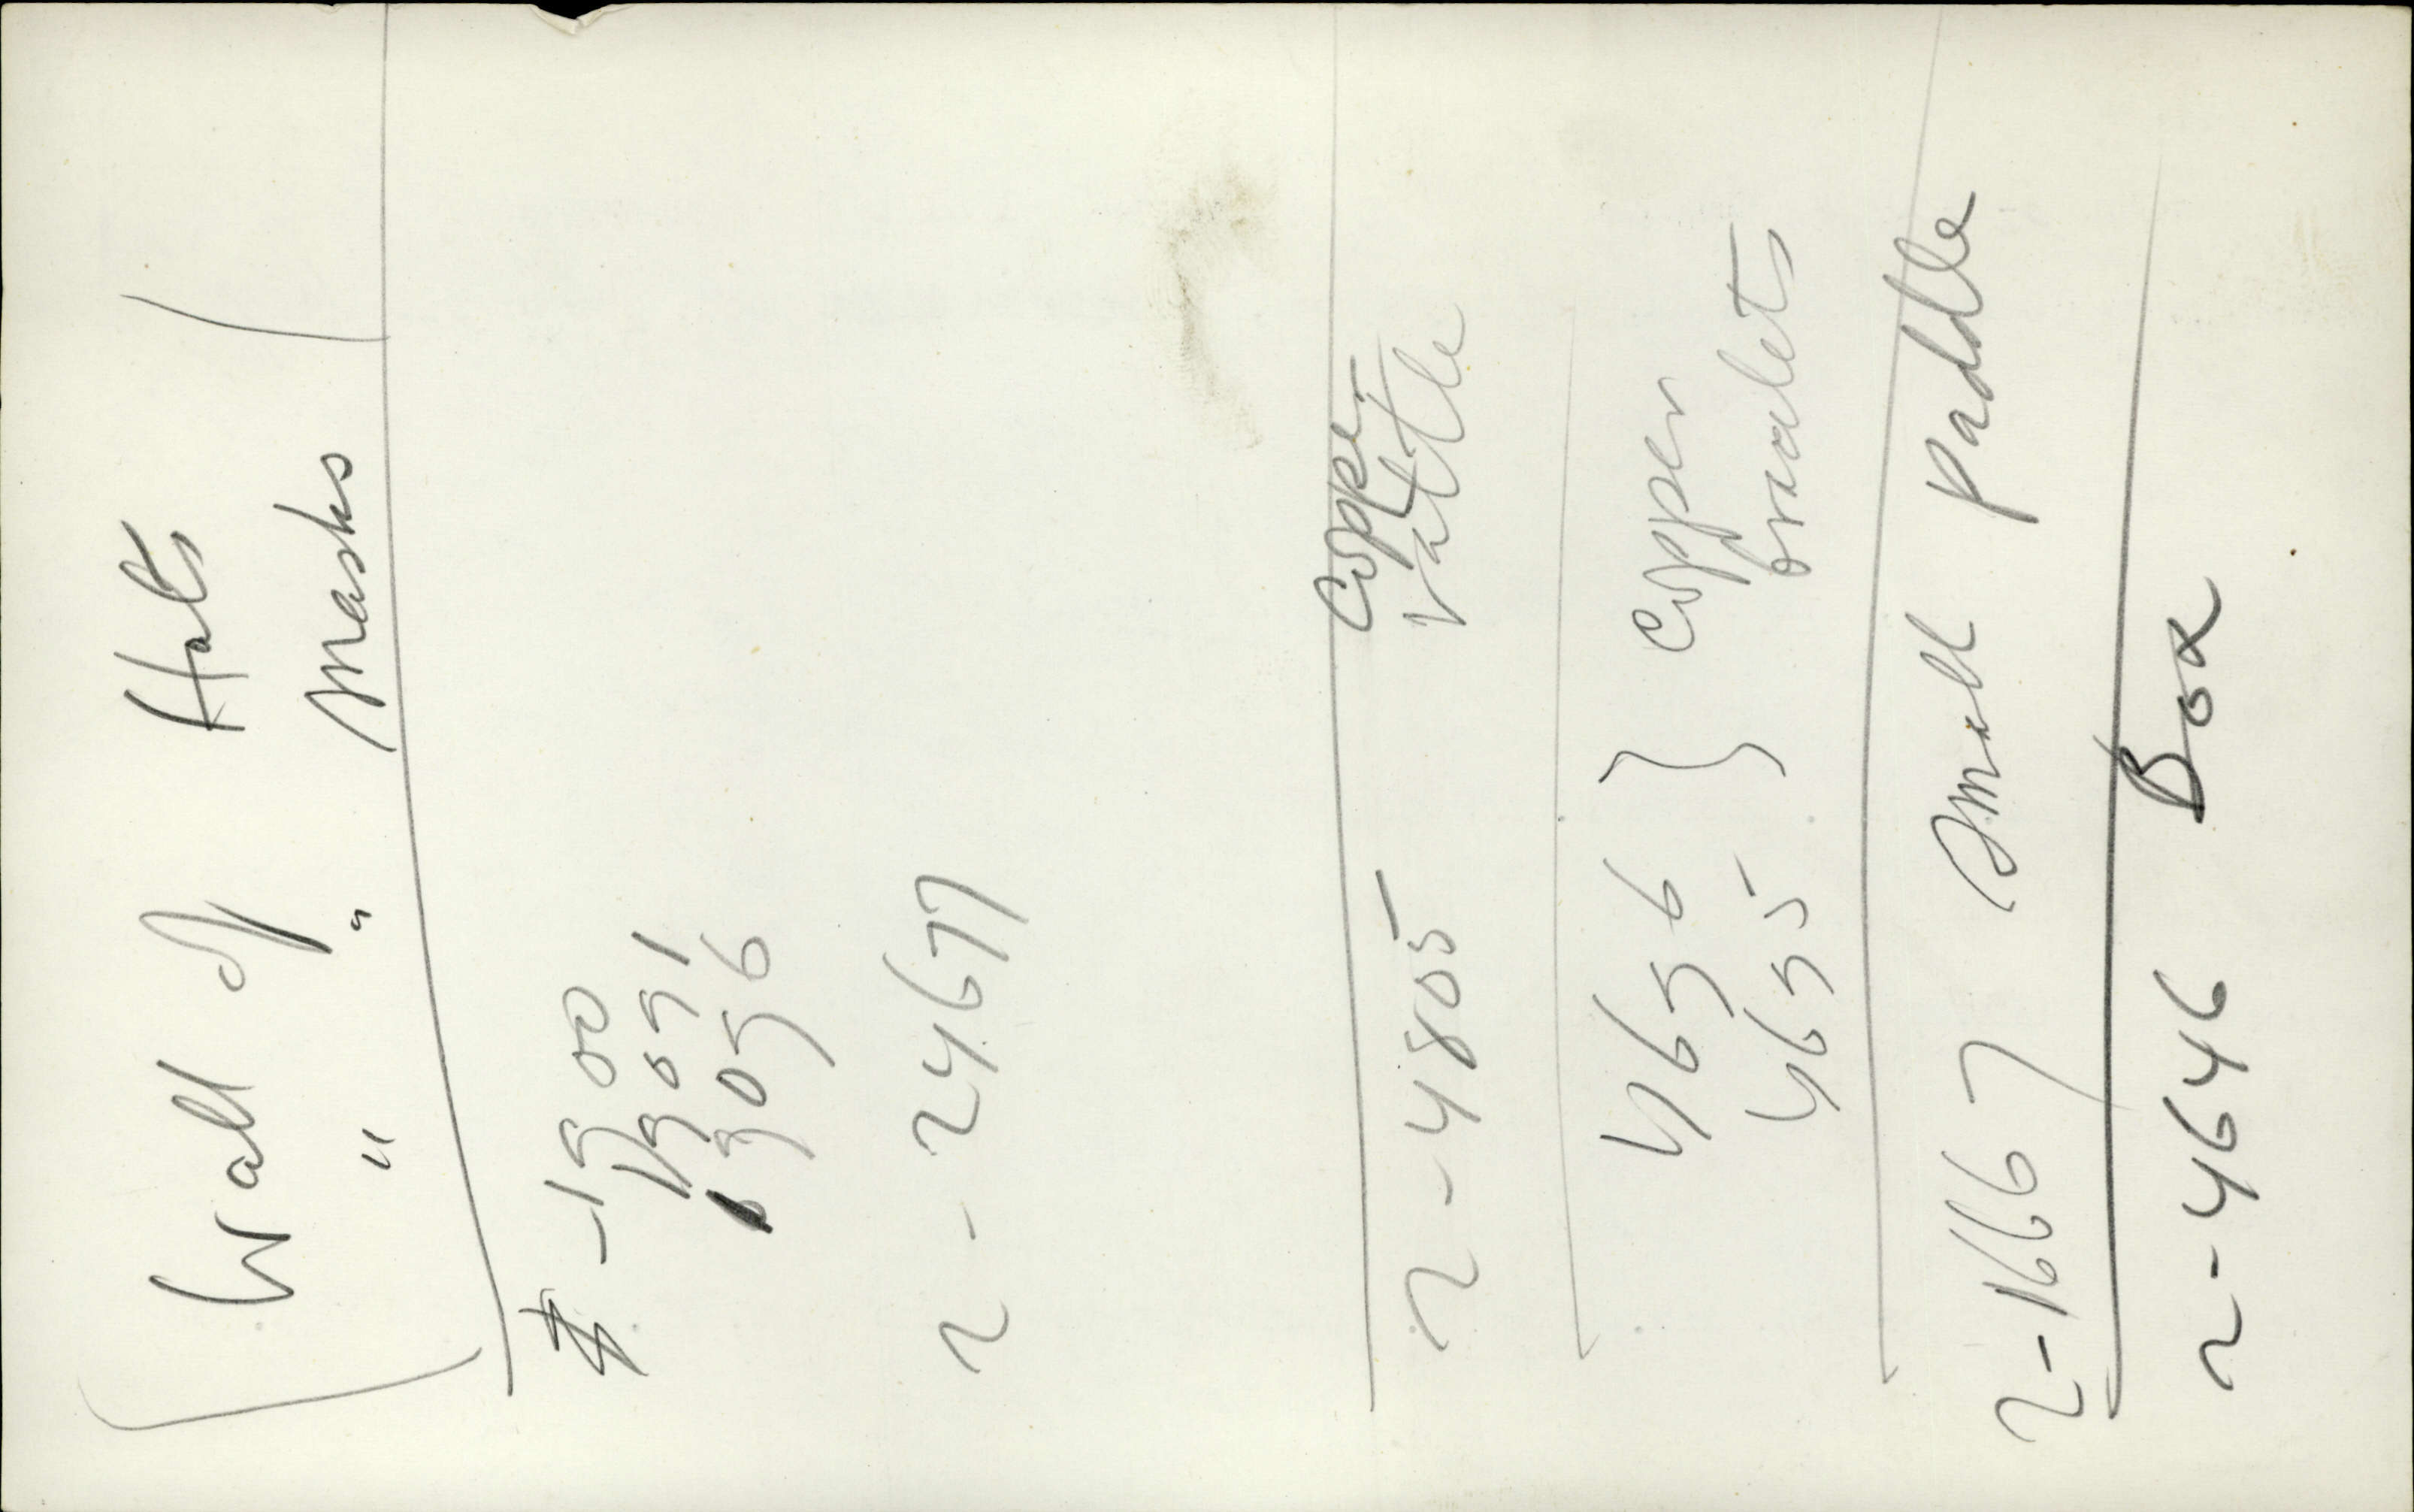 Wall of Hats
" " Masks
# - 1900
19091
19096
2 - 24677
2 - 4805 Copper
rattle
4656 } Copper
4655 bracelets
2 - 16667 small paddle
2 - 4646 Box